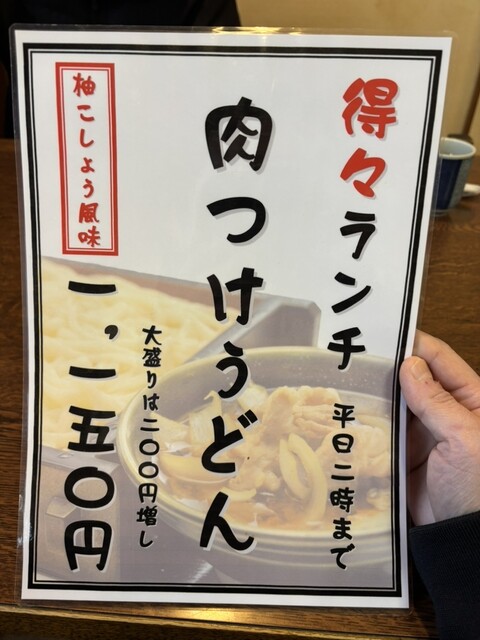 得々ランチ
平日二時まで
肉つけうどん
大盛りは二〇〇円増し
柚こしょう風味
一,一五〇円